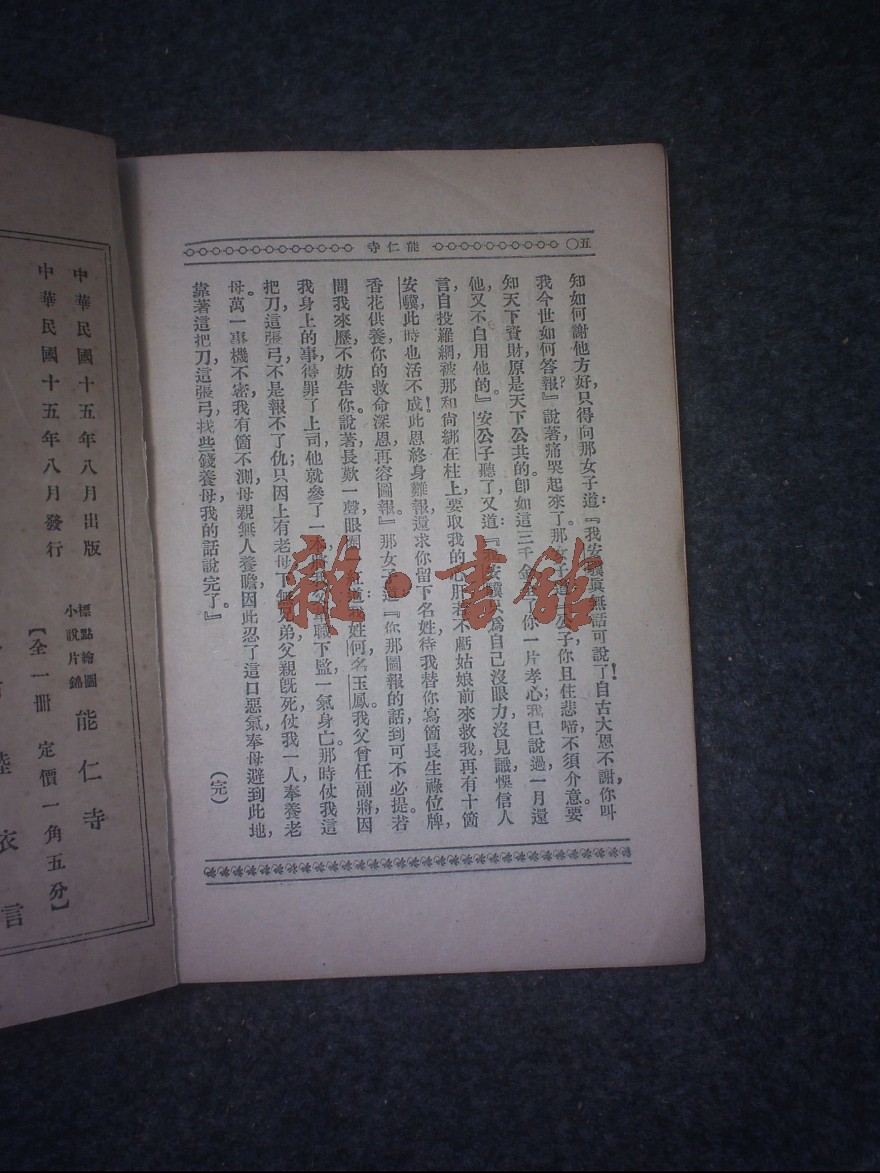 五〇
能仁寺
知如何謝他方好,只得向那女子道:『我安驥眞無話可說了!自古大恩不謝,你叫
我今世如何答報?』說著痛哭起來了。那女子道『公子你且住悲啼,不須介意要
知天下資財,原是天下公共的卽如這三千金
了你一片孝心;我已說過,一月還
他,又不自用他的。』安公子聽了,又道:『
安驥只爲自己沒眼力沒見識,悞信人
言,自投羅網,被那和尙綁在柱上,要取我的心肝,若不虧姑娘前來救我,再有十箇
安驥,此時也活不成!此恩終身難報,還求你留下名姓,待我替你寫箇長生祿位牌,
香花供養,你的救命深恩,再容圖報。』那女子道:『你那圖報的話,到可不必提。若
問我來歷,不妨告你。』說著,長歎一聲,眼圈
紅,道:
姓何,名玉鳳。我父曾任副將,因
我身上的事,得罪了上司,他就參了一本,
職下監,一氣身亡。那時仗我這
把刀,這張弓,不是報不了仇;只因上有老母,下無兄弟,父親旣死,仗我一人奉養老
母。萬一事機不密,我有箇不測,母親無人養贍,因此忍了這口惡氣,奉母避到此地,
靠著這把刀,這張弓,找些錢養母,我的話說完了。』
(完)
雜·書館
中華民國十五年八月出版
中華民國十五年八月發行
標點繪圖
小說片錦
能仁寺
【全一冊 定價一角五分】
衣言